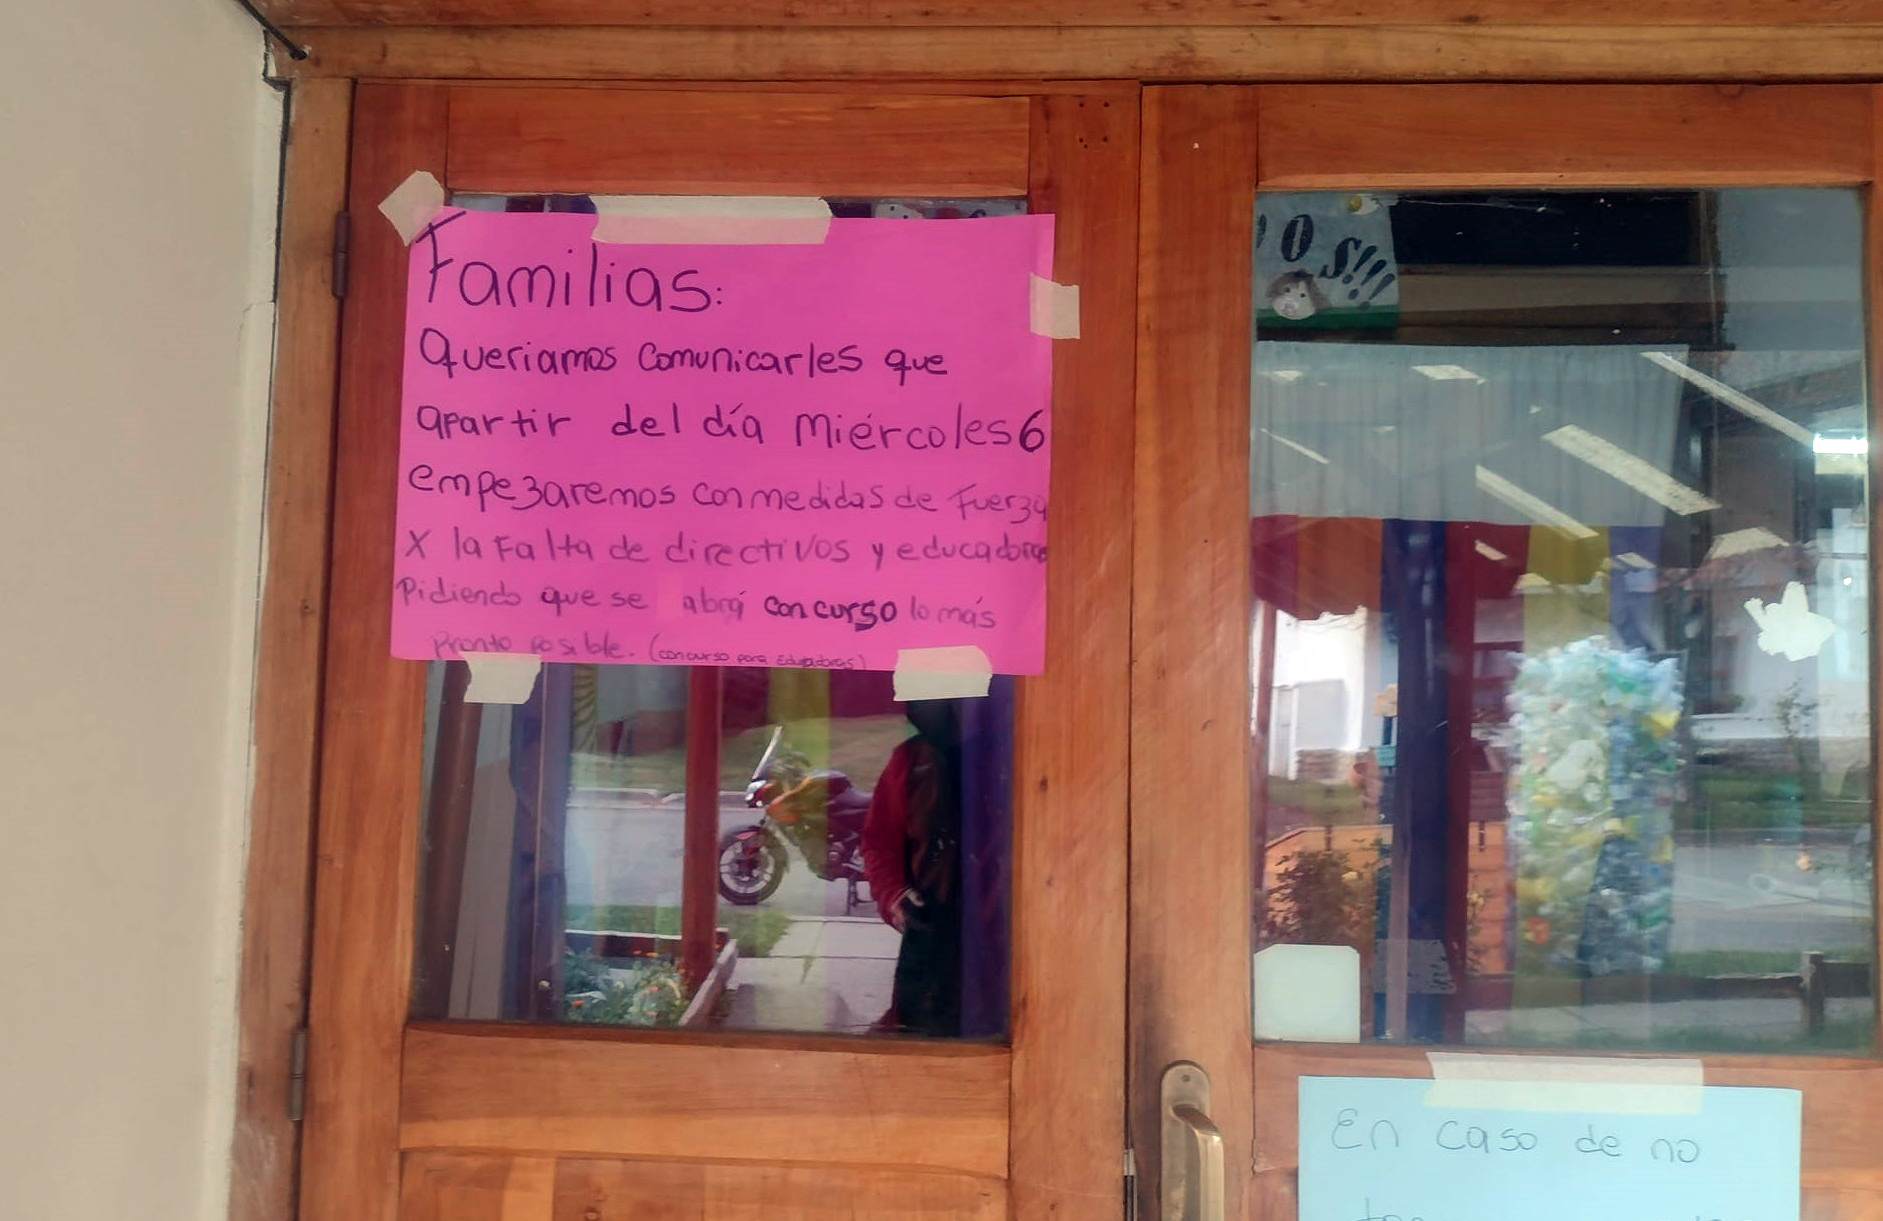 Familias:
Queriamos comunicarles que
apartir del día Miércoles 6
empezaremos con medidas de Fuerza
X la Falta de directivos y educadoras
Pidiendo que se abrá concurso lo más
Pronto posible. (concurso para Educadoras)
OS!!!
En caso de no